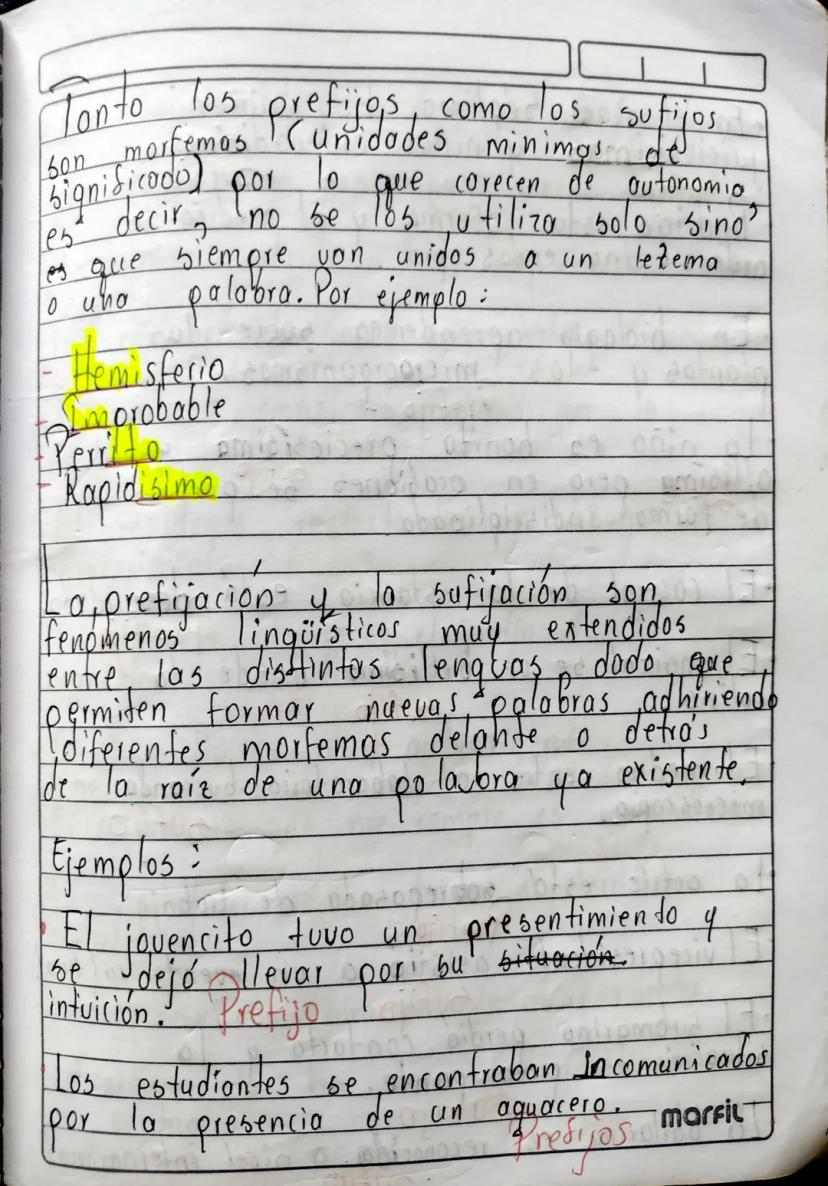 Tanto los prefijos como los sufijos
son morfemas (unidades minimas de
significado) por lo que carecen de autonomia
es decir, no se los utiliza solo sino,
es que siempre van unidos a un lexema
o una palabra. Por ejemplo:
- Hemisferio
- Improbable
- Perrito
- Rapidisimo
La prefijación y la sufijación son
fenómenos lingüisticos muy extendidos
entre las distintas lenguas, dado que
permiten formar nuevas palabras adhiriendo
diferentes morfemas delante o detrás
de la raíz de una palabra ya existente.
Ejemplos:
El jovencito tuvo un presentimiento y
se dejó llevar por su situación.
intuición. Prefijo
Los estudiantes se encontraban Incomunicados
por la presencia de un aguacero.
Prefijos
marfil